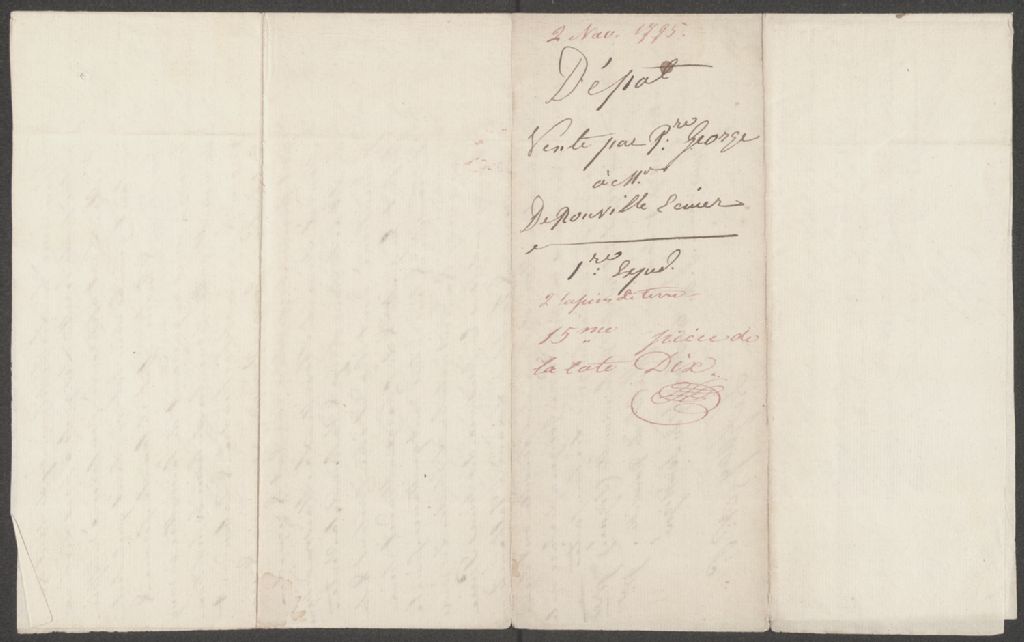 2 Nov. 1795.
Dépot
Vente par P.re George
à M.r
De Rouville Ecuier
1.re Exped.
2 de terre
15.me pièce de
la cote Dix.